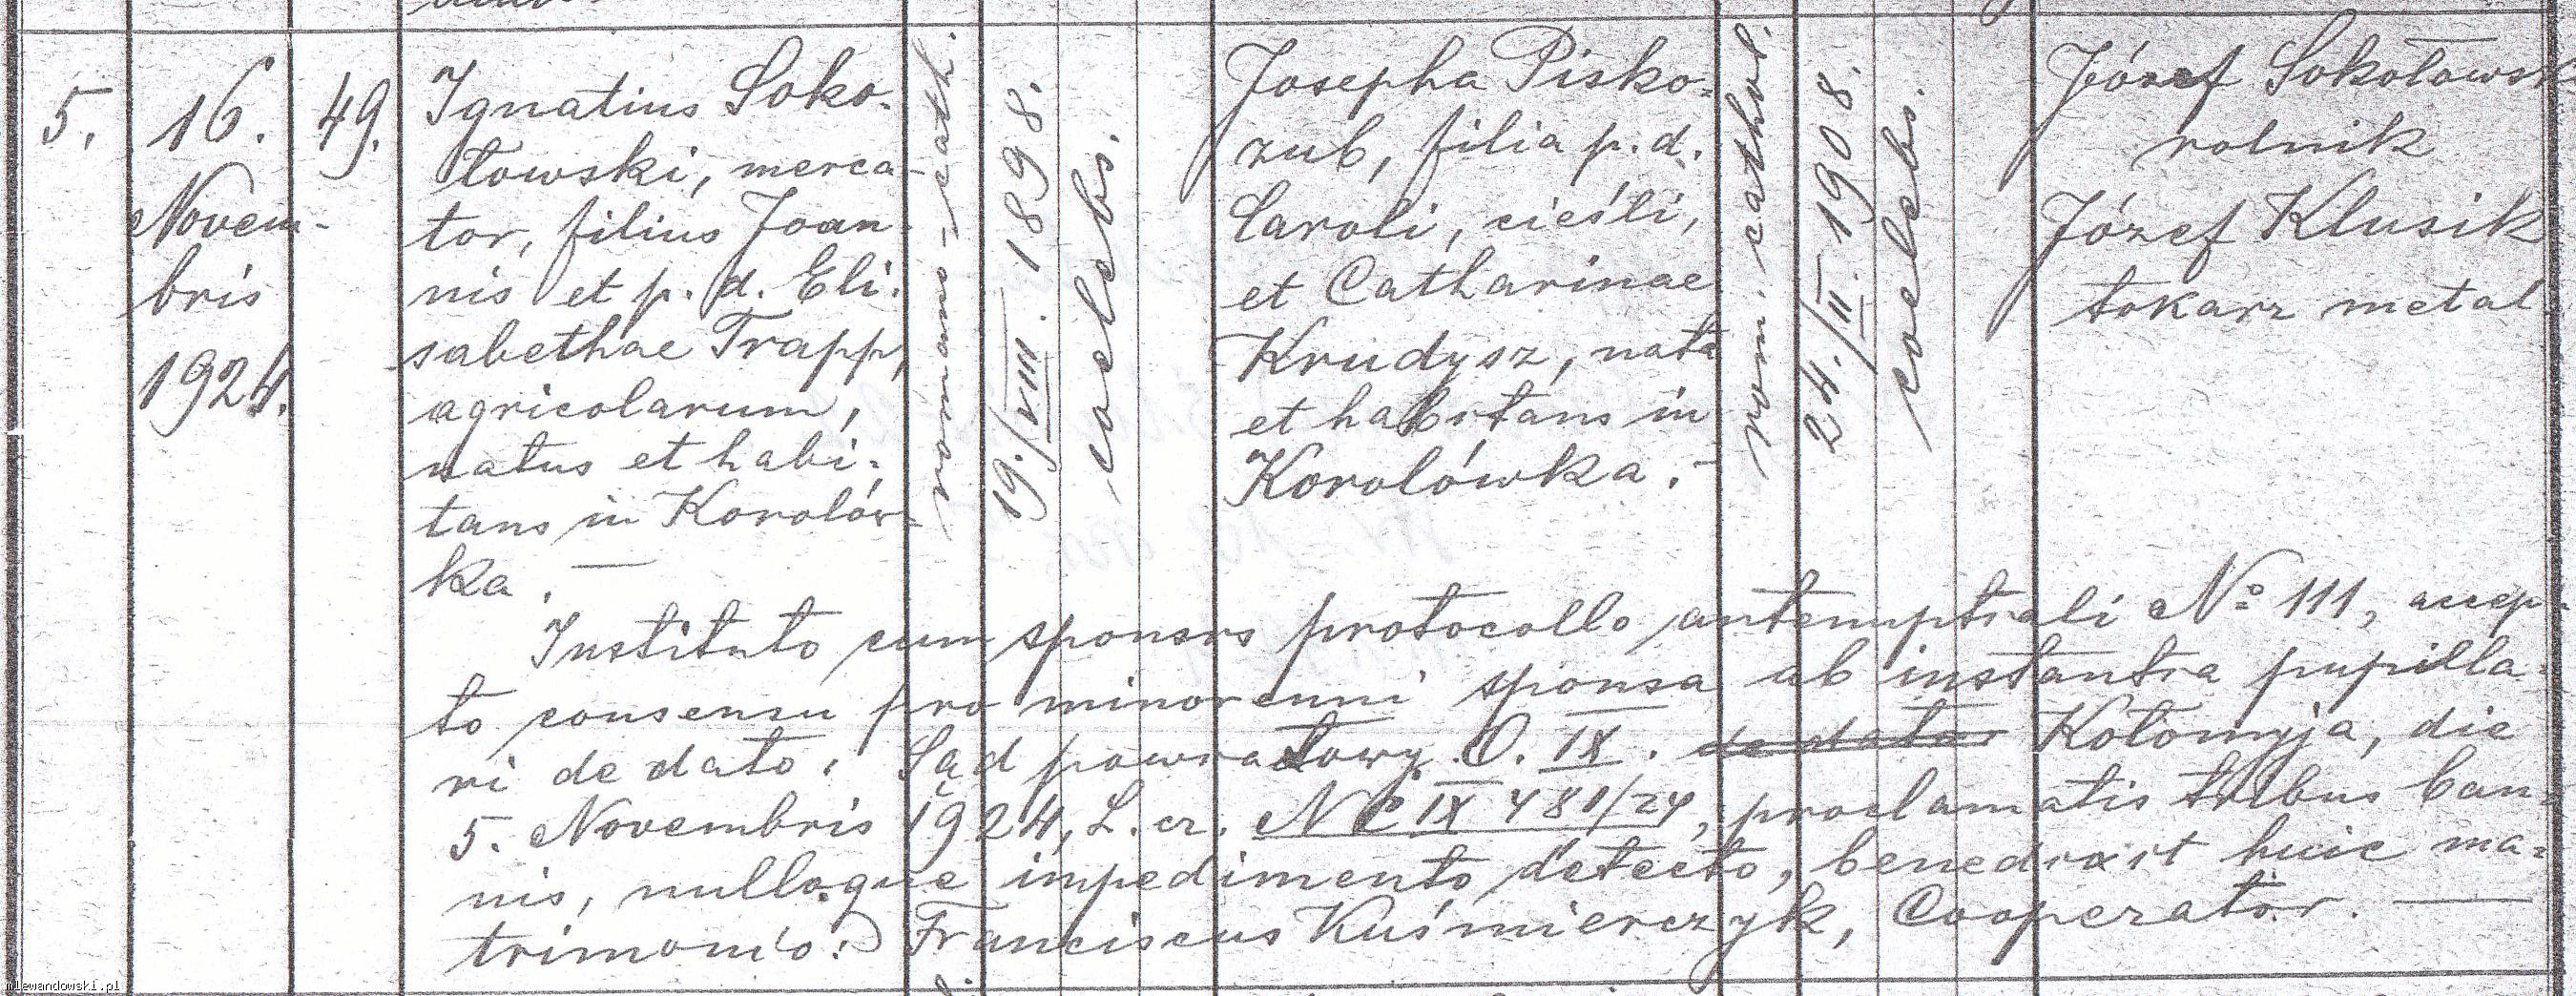 5.
16.
Novem-
bris
1924.
49.
Ignatius Soko-
łowski, merca-
tor, filius Joan-
nis et p. d. Eli-
sabethae Trapp,
agricolarum,
natus et habi-
tans in Korolów-
ka. —
romano-cath.
19./VIII. 1898.
coelebs.
Josepha Pisko-
zub, filia p. d.
Caroli, cieśli,
et Catharinae
Krudysz, nata
et habitans in
Korolówka. -
rom. cathol.
24./II. 1908.
coelebs.
Józef Sokołowsk
rolnik
Józef Klusik
tokarz metal.
Instituto cum sponsis protocollo antenuptiali No 111, accep-
to consensu pro minorenni sponsa ab instantia pupilla-
ri de dato: Sąd powiatowy. O. IX. de dato Kołomyja, die
5. Novembris 1924, L. cz. Nc IX 480/24, proclamatis tribus ban-
nis, nulloque impedimento detecto, benedixit huic ma-
trimonio: Franciscus Kuśmierczyk, Cooperator. —
mlewandowski.pl